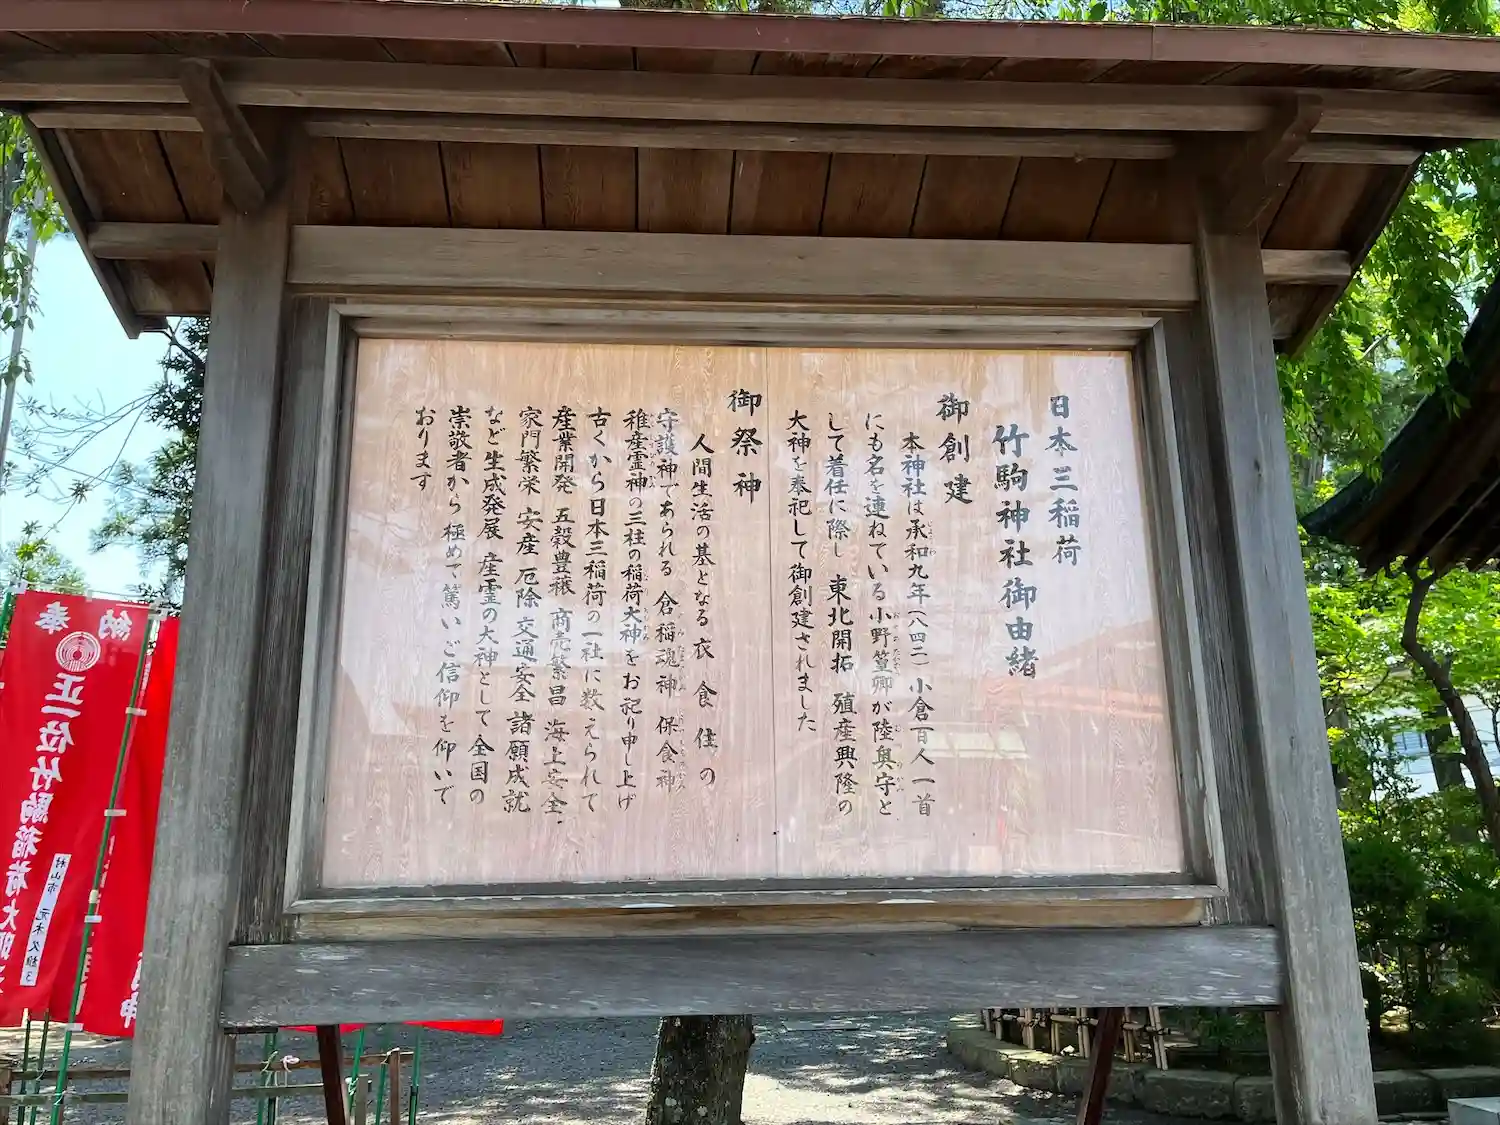 日本三稲荷
竹駒神社御由緒
御創建
本神社は承和九年(八四二)小倉百人一首
にも名を連ねている小野篁卿が陸奥守と
して着任に際し 東北開拓 殖産興隆の
大神を奉祀して御創建されました
御祭神
人間生活の基となる衣 食 住 の
守護神であられる 倉稲魂神 保食神
稚産霊神の三柱の稲荷大神をお祀り申し上げ
古くから日本三稲荷の一社に数えられて
産業開発 五穀豊穣 商売繁昌 海上安全
家門繁栄 安産 厄除 交通安全 諸願成就
など生成発展 産霊の大神として全国の
崇敬者から 極めて篤いご信仰を仰いで
おります
奉納
正一位竹駒稲荷大明
村山市 元木久雄